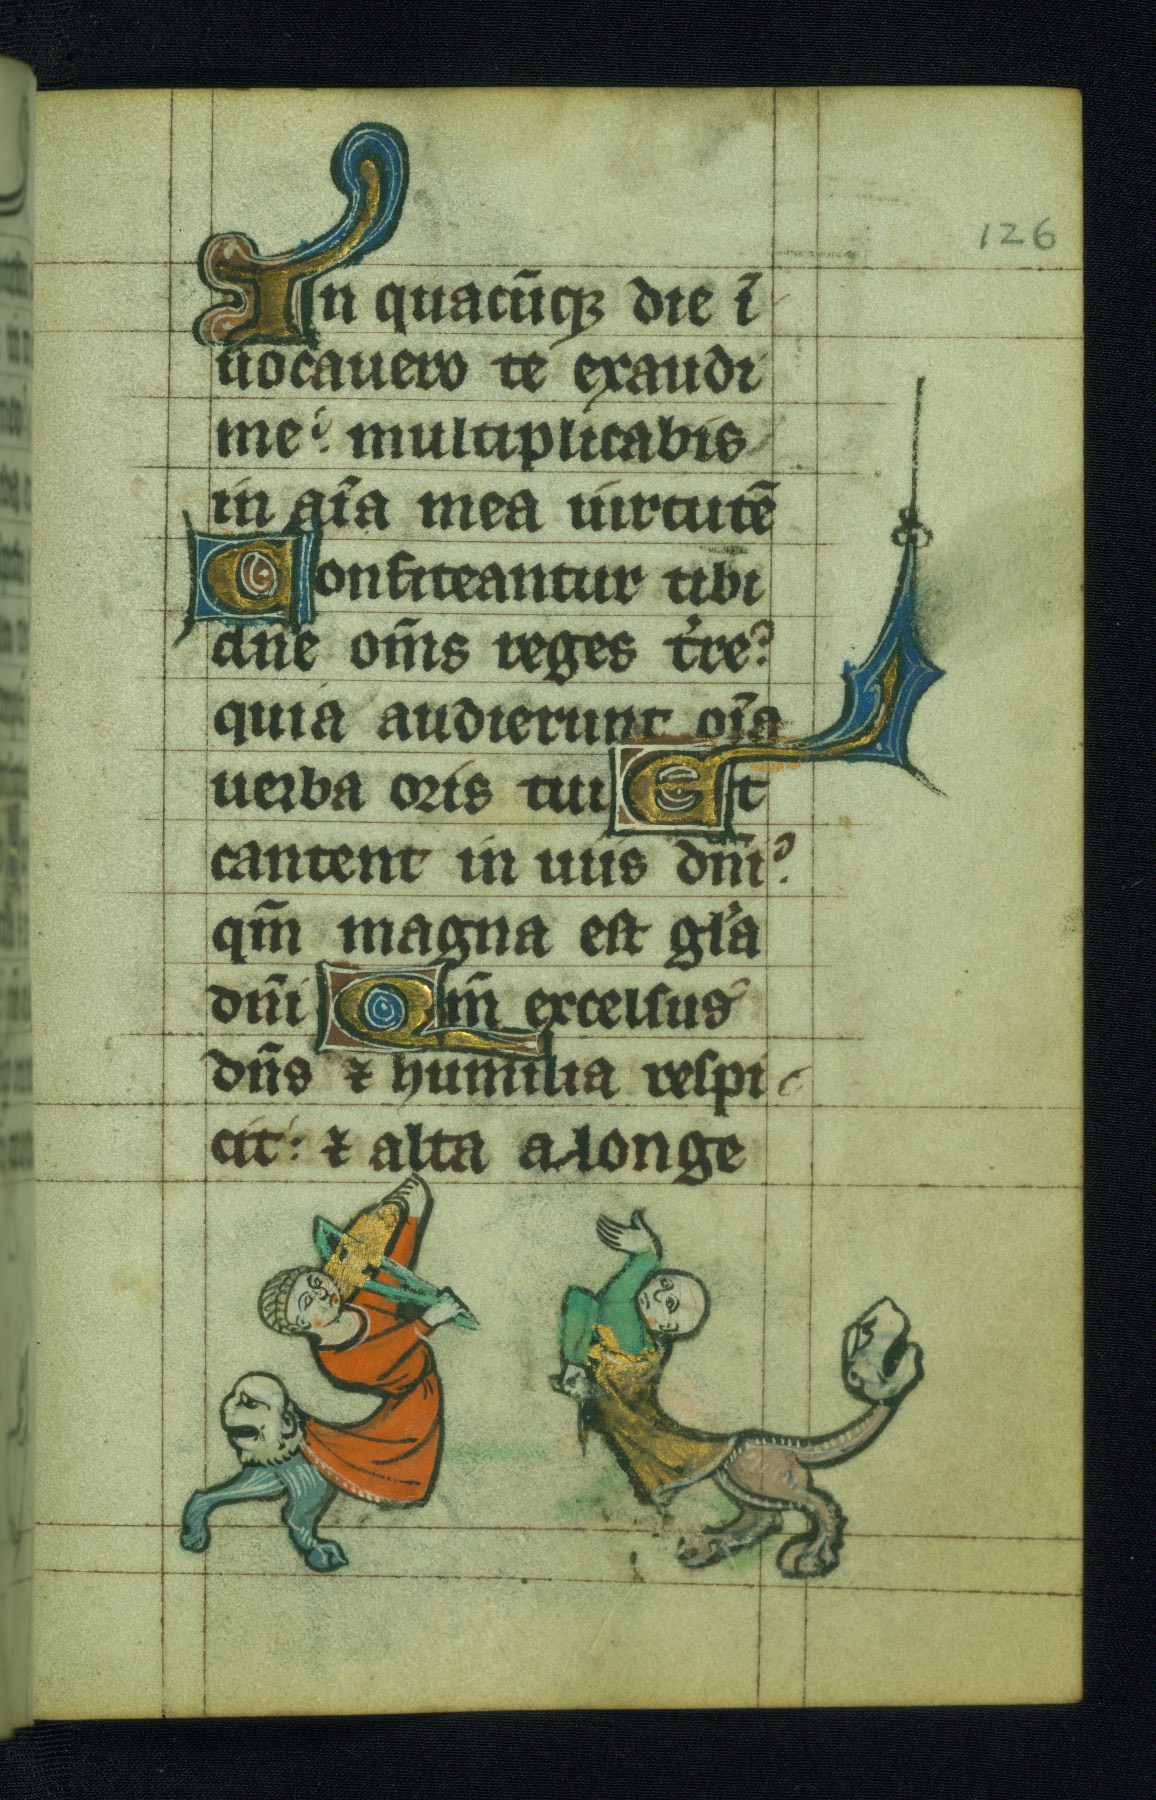 126
In quacūqꝫ die ī
uocauero te exaudi
me: multiplicabis
in aīa mea uirtutē
Confiteantur tibi
dn̄e om̄s reges t̄re:
quia audierunt oīa
uerba oris tui Et
cantent in uiis dn̄i:
qm̄ magna est gl̄a
dn̄i Qm̄ excelsus
dn̄s ⁊ humilia respi
cit: ⁊ alta a longe